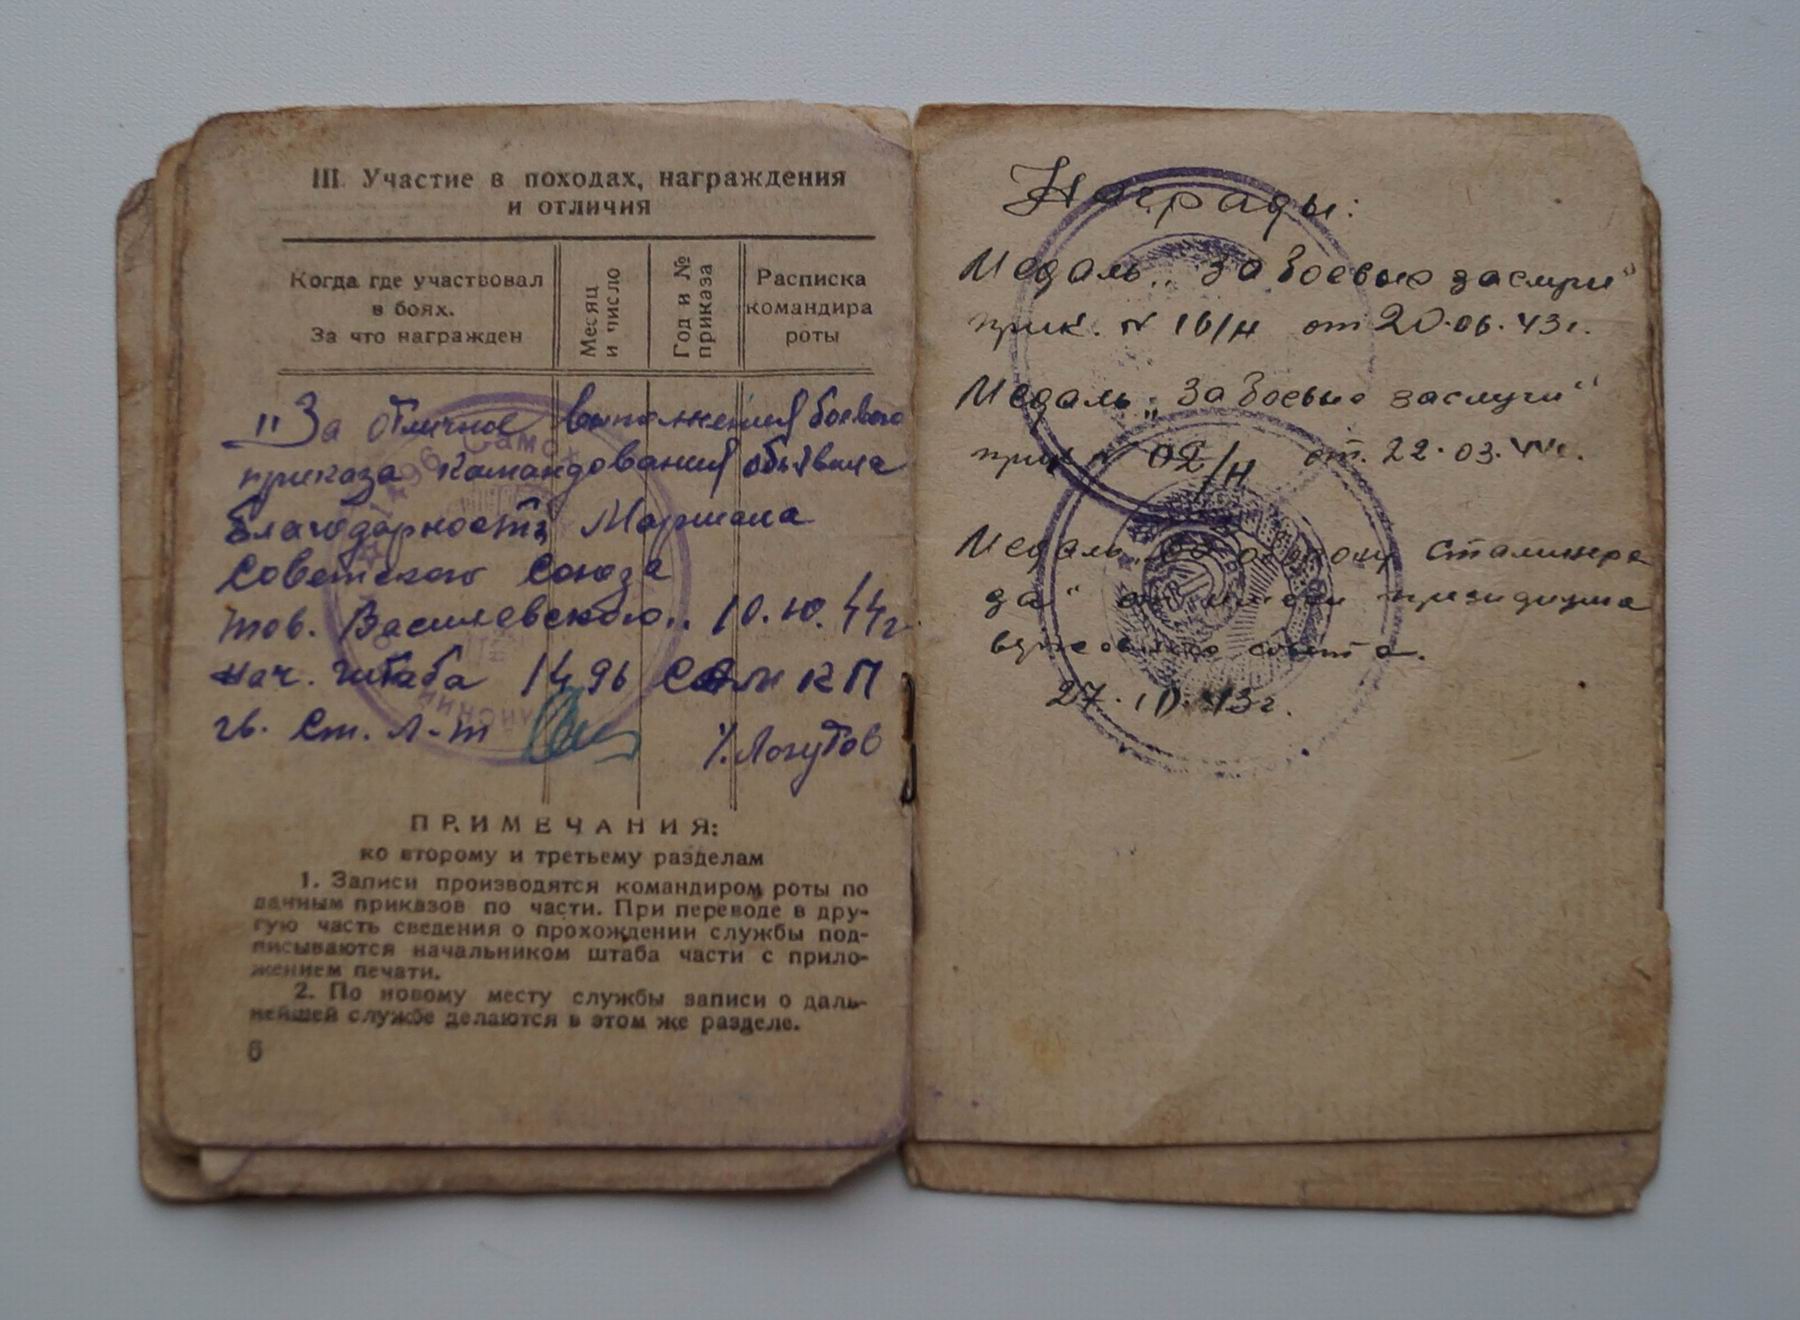 III. Участие в походах, награждения
и отличия
Когда где участвовал
в боях.
За что награжден
Месяц
и число
Год и №
приказа
Расписка
командира
роты
"За отличное выполнения боевого
приказа командования объявлена
благодарность Маршала
Советского Союза
тов. Василевского". 10.10.44г.
Нач. штаба 1496 САМ КП
гв. Ст. Л-т /Логутов
ПРИМЕЧАНИЯ:
ко второму и третьему разделам
1. Записи производятся командиром роты по
данным приказов по части. При переводе в дру-
гую часть сведения о прохождении службы под-
писываются начальником штаба части с прило-
жением печати.
2. По новому месту службы записи о даль-
нейшей службе делаются в этом же разделе.
6
Награды:
Медаль „За боевые заслуги"
прик. № 16/н от 20.06.43г.
Медаль „За боевые заслуги"
прик № 02/н от. 22.03.44г.
Медаль „За оборону Сталингра
да" от имени президиума
верховного совета.
27.10.43г.